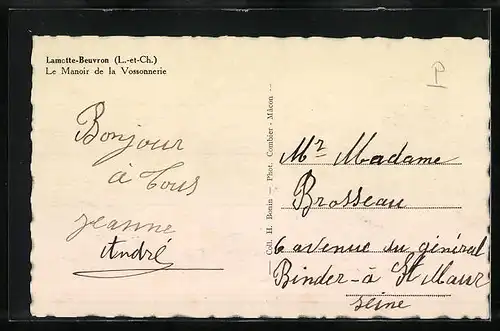 Lamotte-Beuvron (L.-et-Ch.)
Le Manoir de la Vossonnerie
Bonjour
à tous
jeanne
André
Coll. H. Bonin — Phot. Combier - Mâcon
P
Mr Madame
Brosseau
6 avenue du général
Binder - à St Maur
seine